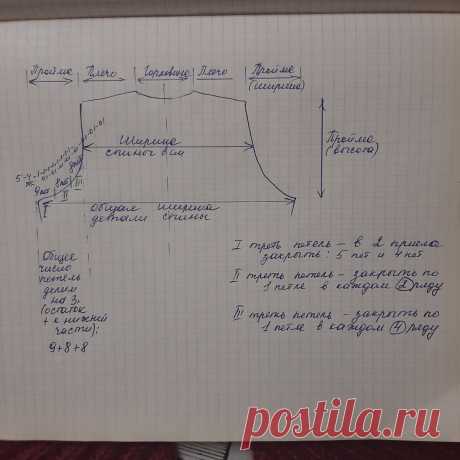 Пройма Плечо Горловина Плечо Пройма
(ширина)
Ширина
спины в см
Пройма
(высота)
5-4-1-1-1
I II III
Общая ширина
детали спины
Общее
число
петель
делим
на 3,
(остаток
+ к нижней
части):
9+8+8
I треть петель – в 2 приема
закрыть: 5 пет и 4 пет
II треть петель – закрыть по
1 петле в каждом 2 ряду
III треть петель – закрыть по
1 петле в каждом 4 ряду
Postila.ru